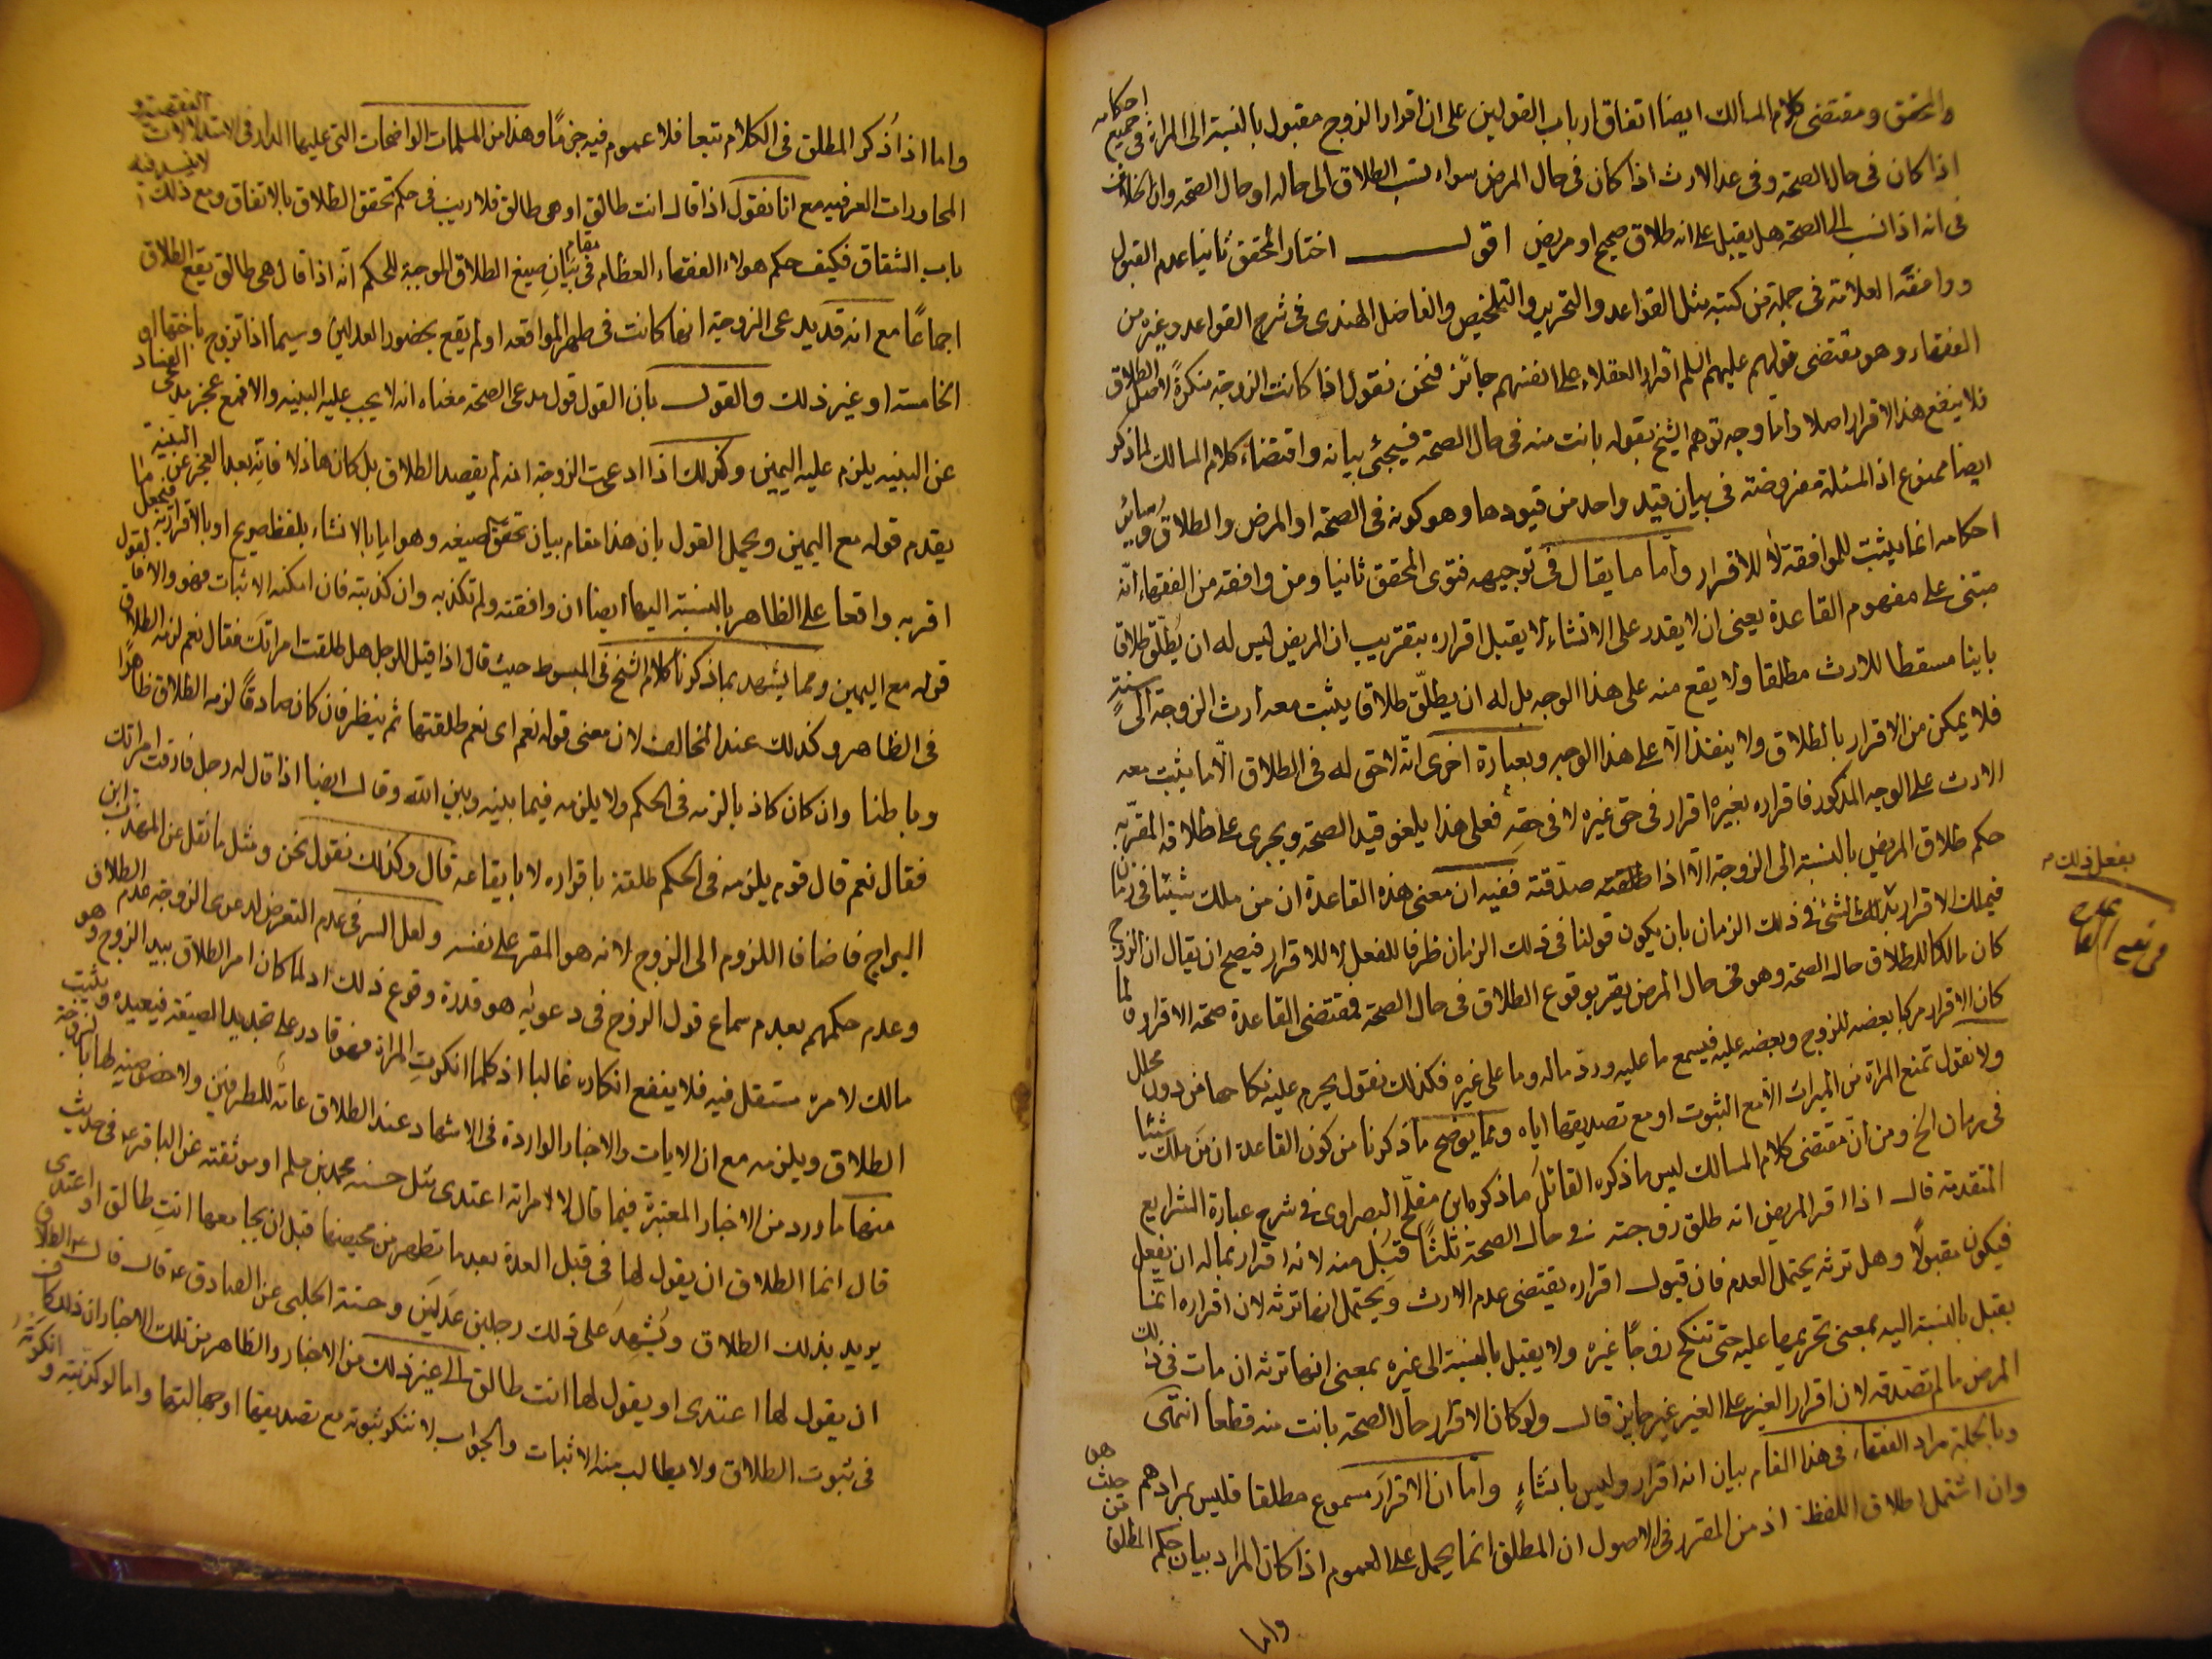 والمحقق ومقتضى كلام المسالك ايضا اتفاق ارباب القولين على ان اقرار الزوج مقبول بالنسبة الى المراة في جميع احكامه
اذا كان في حال الصحة وفي عدم الارث اذا كان في حال المرض سواء نسب الطلاق الى حاله او حال الصحة وان الخلاف
في انه اذا نسب الى الصحة هل يقبل على انه طلاق صحيح او مريض اقول اختار المحقق ثانيا عدم القبول
ووافقه العلامة في جملة من كتبه مثل القواعد والتحرير والتلخيص والفاضل الهندي في شرح القواعد وغيره من
الفقهاء وهو مقتضى قولهم عليهم السلم اقرار العقلاء على انفسهم جائز فنحن نقول اذا كانت الزوجة منكرة لاصل الطلاق
فلا ينفع هذا الاقرار اصلا واما وجه توهم الشيخ بقوله بانت منه في حال الصحة فسيجئ بيانه واقتضاء كلام المسالك لما ذكر
ايضا ممنوع اذ المسئلة مفروضة في بيان قيد واحد من قيودها وهو كونه في الصحة او المرض والطلاق وسائر
احكامه انما يثبت للموافقة لا للاقرار واما ما يقال في توجيهه فتوى المحقق ثانيا ومن وافقه من الفقهاء انه
مبتنى على مفهوم القاعدة يعني ان لا يقدر على الانشاء لا يقبل اقراره بتقريب ان المريض ليس له ان يطلق طلاقا
باينا مسقطا للارث مطلقا ولا يقع منه على هذا الوجه بل له ان يطلق طلاقا يثبت معه ارث الزوجة الى سنة
فلا يمكن من الاقرار بالطلاق ولا ينفذ الا على هذا الوجه وبعبارة اخرى انه لا حق له في الطلاق الا ما يثبت معه
الارث على الوجه المذكور فاقراره بغيره اقرار في حق غيره لا في حقه فعلى هذا يلغو قيد الصحة ويجرى على طلاقه المقر به
حكم طلاق المريض بالنسبة الى الزوجة الا اذا صدقته ففيه ان معنى هذه القاعدة ان من ملك شيئا في زمان
فيملك الاقرار بذلك الشئ في ذلك الزمان بان يكون قولنا في ذلك الزمان ظرفا للفعل لا للاقرار فيصح ان يقال ان الزوج
كان مالكا للطلاق حال الصحة وهو في حال المرض يقر بوقوع الطلاق في حال الصحة فمقتضى القاعدة صحة الاقرار ولما
كان الاقرار مركبا بعضه للزوج وبعضه عليه فيسمع ما عليه ورد ماله وما على غيره فكذلك نقول يحرم عليه نكاحها من دون محلل
ولا نقول تمنع المراة من الميراث الا مع الثبوت او مع تصديقها اياه ومما يوضح ما ذكرنا من كون القاعدة ان من ملك شيئا
في زمان الخ ومن ان مقتضى كلام المسالك ليس ما ذكره القائل ما ذكره ابن مفلح البصراوي في شرح عبارة الشرايع
المتقدمة قال اذا اقر المريض انه طلق زوجته في حال الصحة ثلثا قبل منه لانه اقرار بماله ان يفعل
فيكون مقبولا وهل ترثه يحتمل العدم فان قبول اقراره يقتضى عدم الارث ويحتمل انها ترثه لان اقراره انما
يقبل بالنسبة اليه بمعنى تحريمها عليه حتى تنكح زوجا غيره ولا يقبل بالنسبة الى غيره بمعنى انها ترثه ان مات في ذلك
المرض ما لم تصدقه لان اقرار الغير على الغير غير جايز قال ولو كان الاقرار حال الصحة بانت منه قطعا انتهى
وبالجملة مراد الفقهاء في هذا المقام بيان انه اقرار وليس بانشاء واما ان الاقرار مسموع مطلقا فليس بمرادهم
وان اشتمل اطلاق اللفظ اذ من المقرر في الاصول ان المطلق انما يحمل على العموم اذا كان المراد بيان حكم المطلق من حيث هو
واما
يفعل ذلك
واما اذا ذكر المطلق في الكلام تبعا فلا عموم فيه جزما وهذا من المسلمات الواضحات التي عليها المدار في الاستدلالات الفقهية و
المحاورات العرفيه مع انا نقول اذا قال انت طالق او هي طالق فلا ريب في حكم تحقق الطلاق بالاتفاق ومع ذلك
باب الشقاق فكيف حكم هولاء الفقهاء العظام في مقام بيان صيغ الطلاق الموجبة للحكم انه اذا قال هي طالق يقع الطلاق
اجماعا مع انه قد يدعى الزوجة انها كانت في طهر المواقعه او لم يقع بحضور العدلين وسيما اذا تزوج باختها او
الخامسة او غير ذلك والقول بان القول قول مدعى الصحة معناه انه لا يجب عليه البينه والا فمع عجز مدعى الفساد
عن البينه يلزم عليه اليمين وكذلك اذا ادعت الزوجة انه لم يقصد الطلاق بل كان هاذلا فانه بعد العجز عن البينة
يقدم قوله مع اليمين ويحمل القول بان هذا مقام بيان تحقق الصيغه وهو اما بالانشاء بلفظ صريح او بالاقرار به فيجعل ما
اقر به واقعا على الظاهر بالنسبة اليها ايضا ان وافقته ولم تكذبه وان كذبته فان امكنه الاثبات فهو والا فالقول
قوله مع اليمين ومما يشهد بما ذكرنا كلام الشيخ في المبسوط حيث قال اذا قيل للرجل هل طلقت امراتك فقال نعم لزمه الطلاق
في الظاهر وكذلك عند المخالف لان معنى قوله نعم اي نعم طلقتها ثم ينظر فان كان صادقا لزمه الطلاق ظاهرا
وباطنا وان كان كاذبا لزمه في الحكم ولا يلزمه فيما بينه وبين الله وقال ايضا اذا قال له رجل فارقت امراتك
فقال نعم قال قوم يلزمه في الحكم طلقة باقراره لا بايقاعه قال وكذلك نقول نحن ومثل ما نقل عن المهذب ابن
البراج فاضافا اللزوم الى الزوج لانه هو المقر على نفسه ولعل السر في عدم التعرض لدعوى الزوجة عدم الطلاق
وعدم حكمهم بعدم سماع قول الزوج في دعويه هو قدرة وقوع ذلك اذ لما كان امر الطلاق بيد الزوج وهو
مالك لامره مستقل فيه فلا ينفع انكاره غالبا اذ كلما انكرت المراة فهو قادر على تجديد الصيغة فيعيده ويثبت
الطلاق ويلزمه مع ان الايات والاخبار الواردة في الاشهاد عند الطلاق عامة للطرفين ولا خصوصية لها بالزوجة
منها ما ورد من الاخبار المعتبرة فيما قال لامراته اعتدى مثل حسنه محمد بن مسلم او موثقته عن الباقر ع في حديث
قال انما الطلاق ان يقول لها في قبل العدة بعد ما تطهر من محيضها قبل ان يجامعها انت طالق او اعتدى
يريد بذلك الطلاق ويشهد على ذلك رجلين عدلين وحسنة الحلبي عن الصادق ع قال قال الطلاق
ان يقول لها اعتدى او يقول لها انت طالق الى غير ذلك من الاخبار والظاهر من تلك الاخبار ان ذلك كاف
في ثبوت الطلاق ولا يطالب منه الاثبات والجواب لا ننكر ثبوته مع تصديقها او جهالتها واما لو كذبته و انكرته